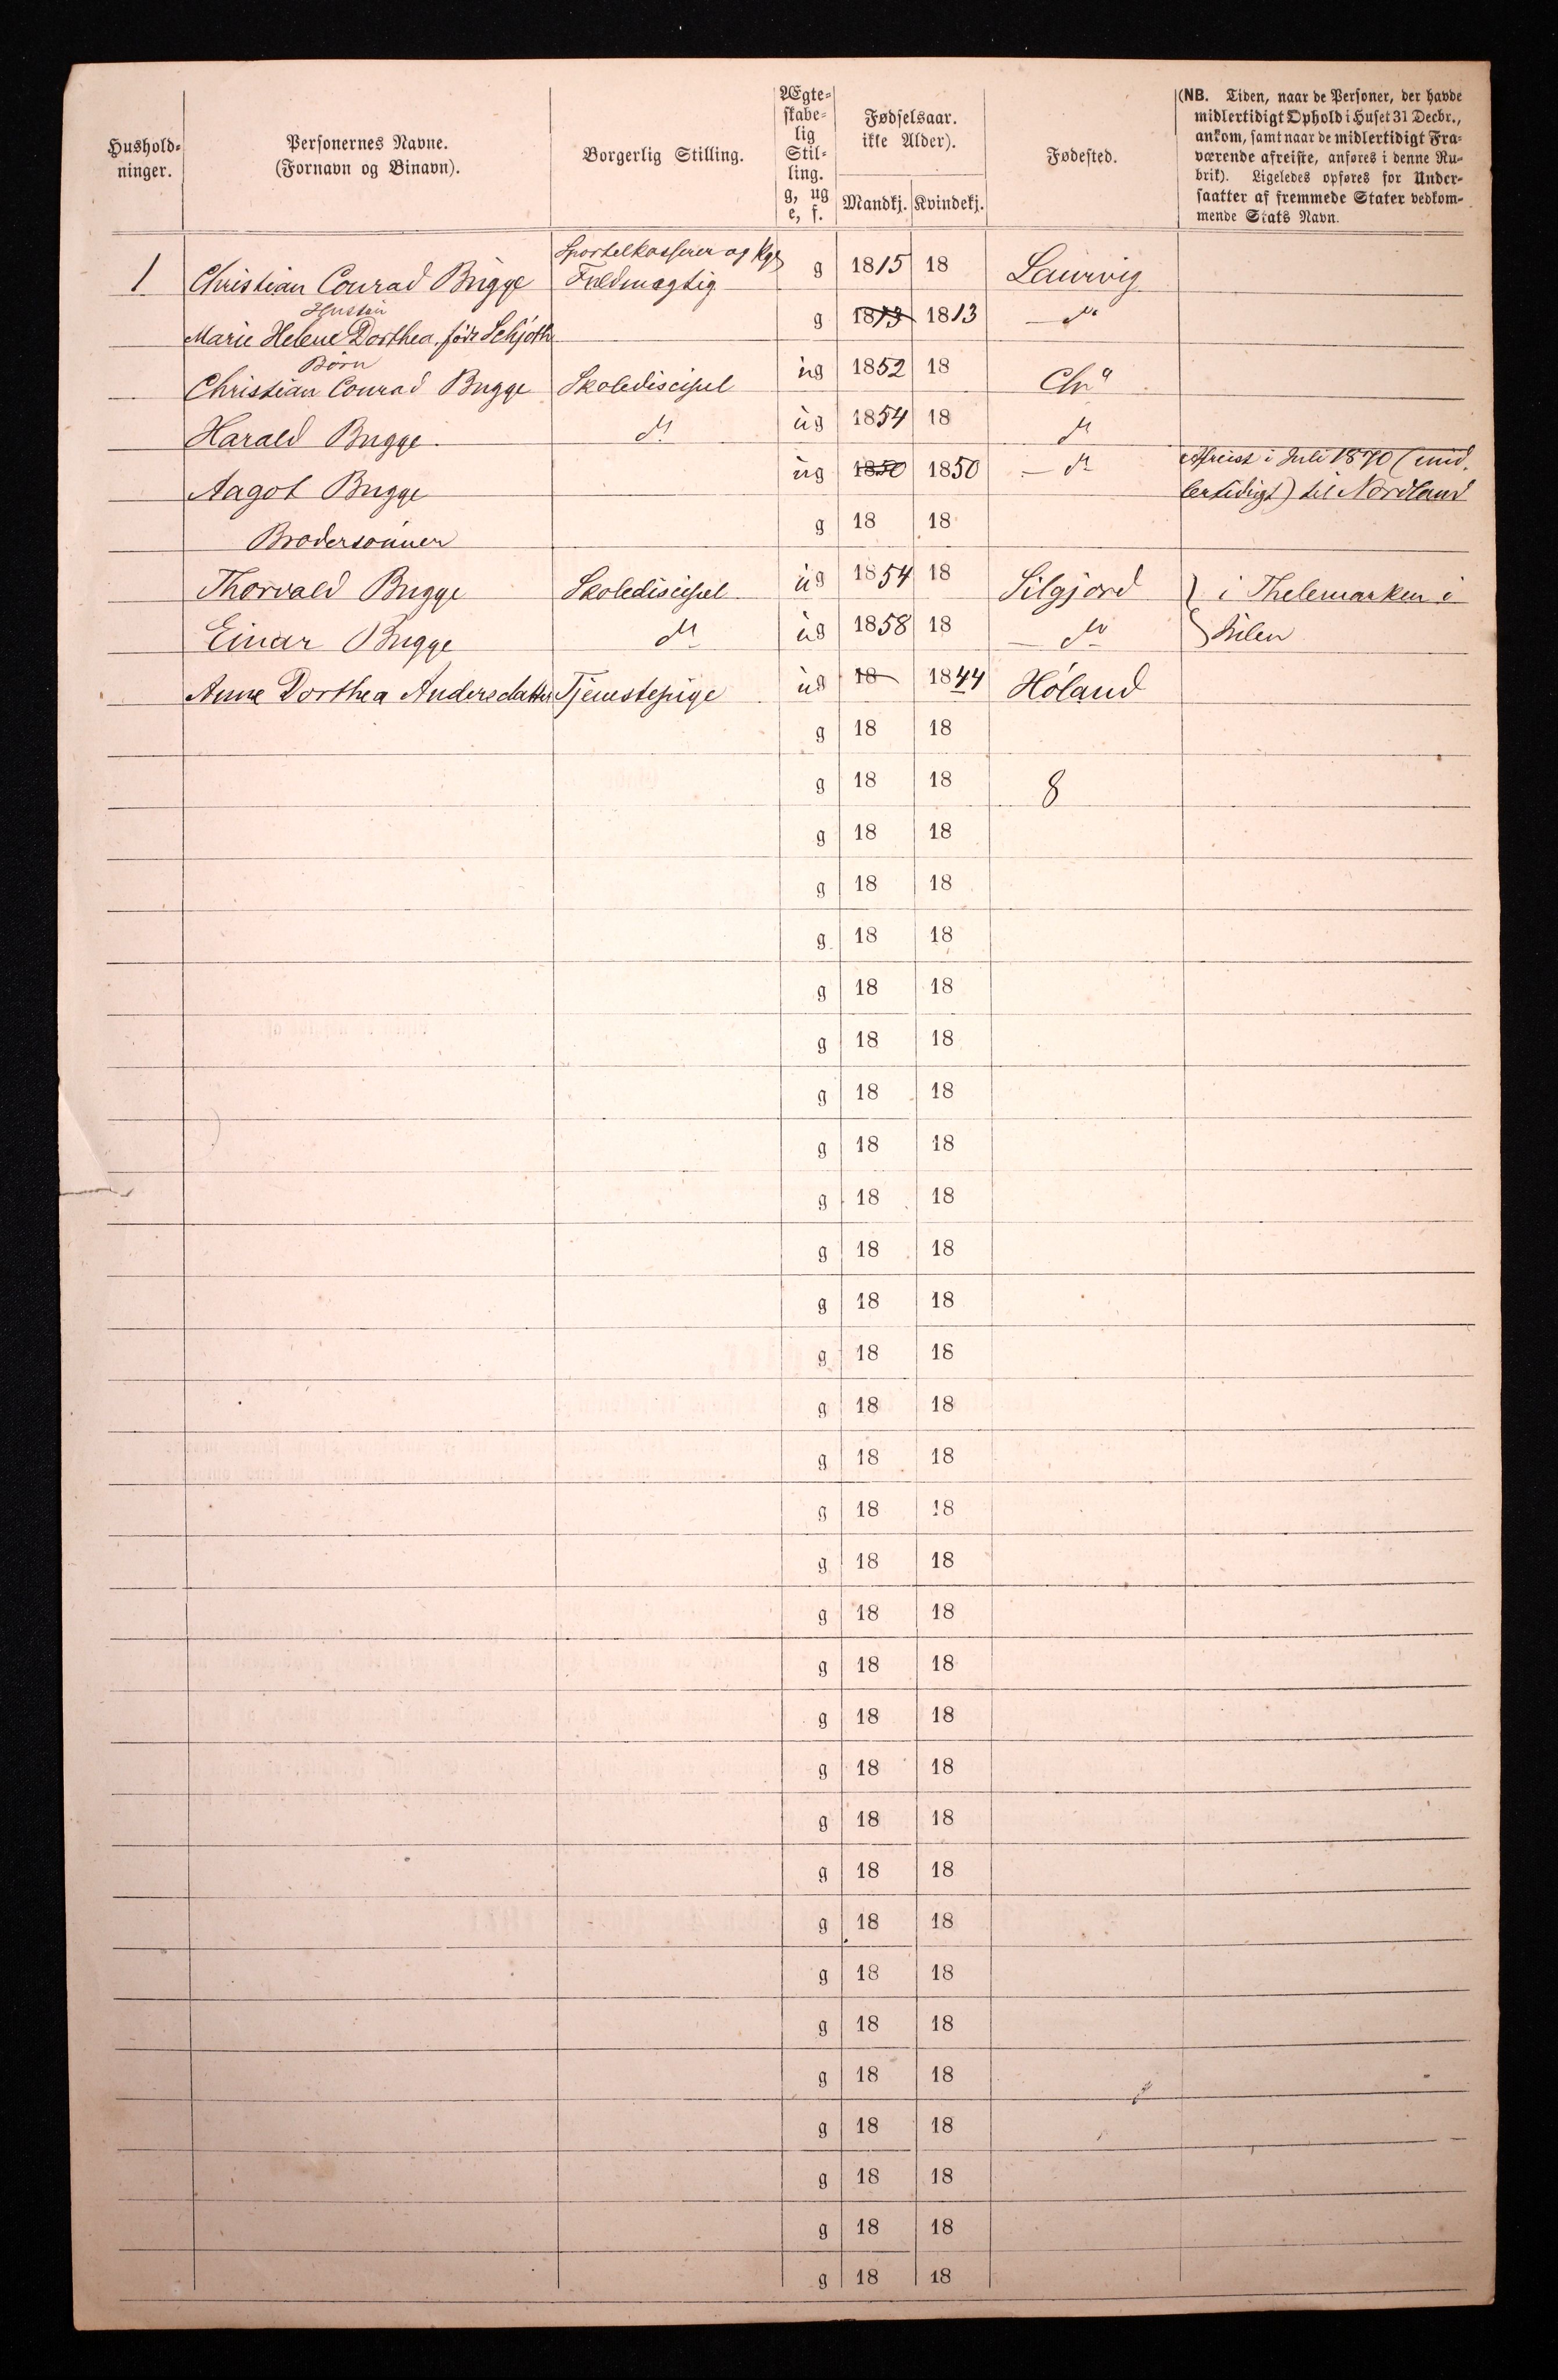 Hushold-
ninger.
Personernes Navne.
(Fornavn og Binavn).
Borgerlig Stilling.
Ægte-
skabe-
lig
Stil-
ling.
g, ug
e, f.
Fødselsaar.
ikke Alder).
Mandkj. Kvindekj.
Fødested.
(NB. Tiden, naar de Personer, der havde
midlertidigt Ophold i Huset 31 Decbr.,
ankom, samt naar de midlertidigt Fra-
værende afreiste, anføres i denne Ru-
brik). Ligeledes opføres for Under-
saatter af fremmede Stater vedkom-
mende Stats Navn.
Sportelkasserer og Kgs
1 Christian Conrad Bugge Fuldmægtig g 1815 18 Laurvig
Hustru
Marie Helene Dorthea, født Schjøth g 1813 1813 — do
Børn
Christian Conrad Bugge Skolediscipel ug 1852 18 Chra
Harald Bugge do ug 1854 18 do
Aagot Bugge ug 1850 1850 — do Afreist i Juli 1870 (mid-
lertidigt) til Nordland
Brodersønner g 18 18
Thorvald Bugge Skolediscipel ug 1854 18 Silgjord } i Thelemarken i
Einar Bugge do ug 1858 18 — do Julen
Anne Dorthea Andersdatter Tjenestepige ug 18 1844 Høland
g 18 18
g 18 18 8
g 18 18
g 18 18
g 18 18
g 18 18
g 18 18
g 18 18
g 18 18
g 18 18
g 18 18
g 18 18
g 18 18
g 18 18
g 18 18
g 18 18
g 18 18
g 18 18
g 18 18
g 18 18
g 18 18
g 18 18
g 18 18
g 18 18
g 18 18
g 18 18
g 18 18
g 18 18
g 18 18
g 18 18
g 18 18